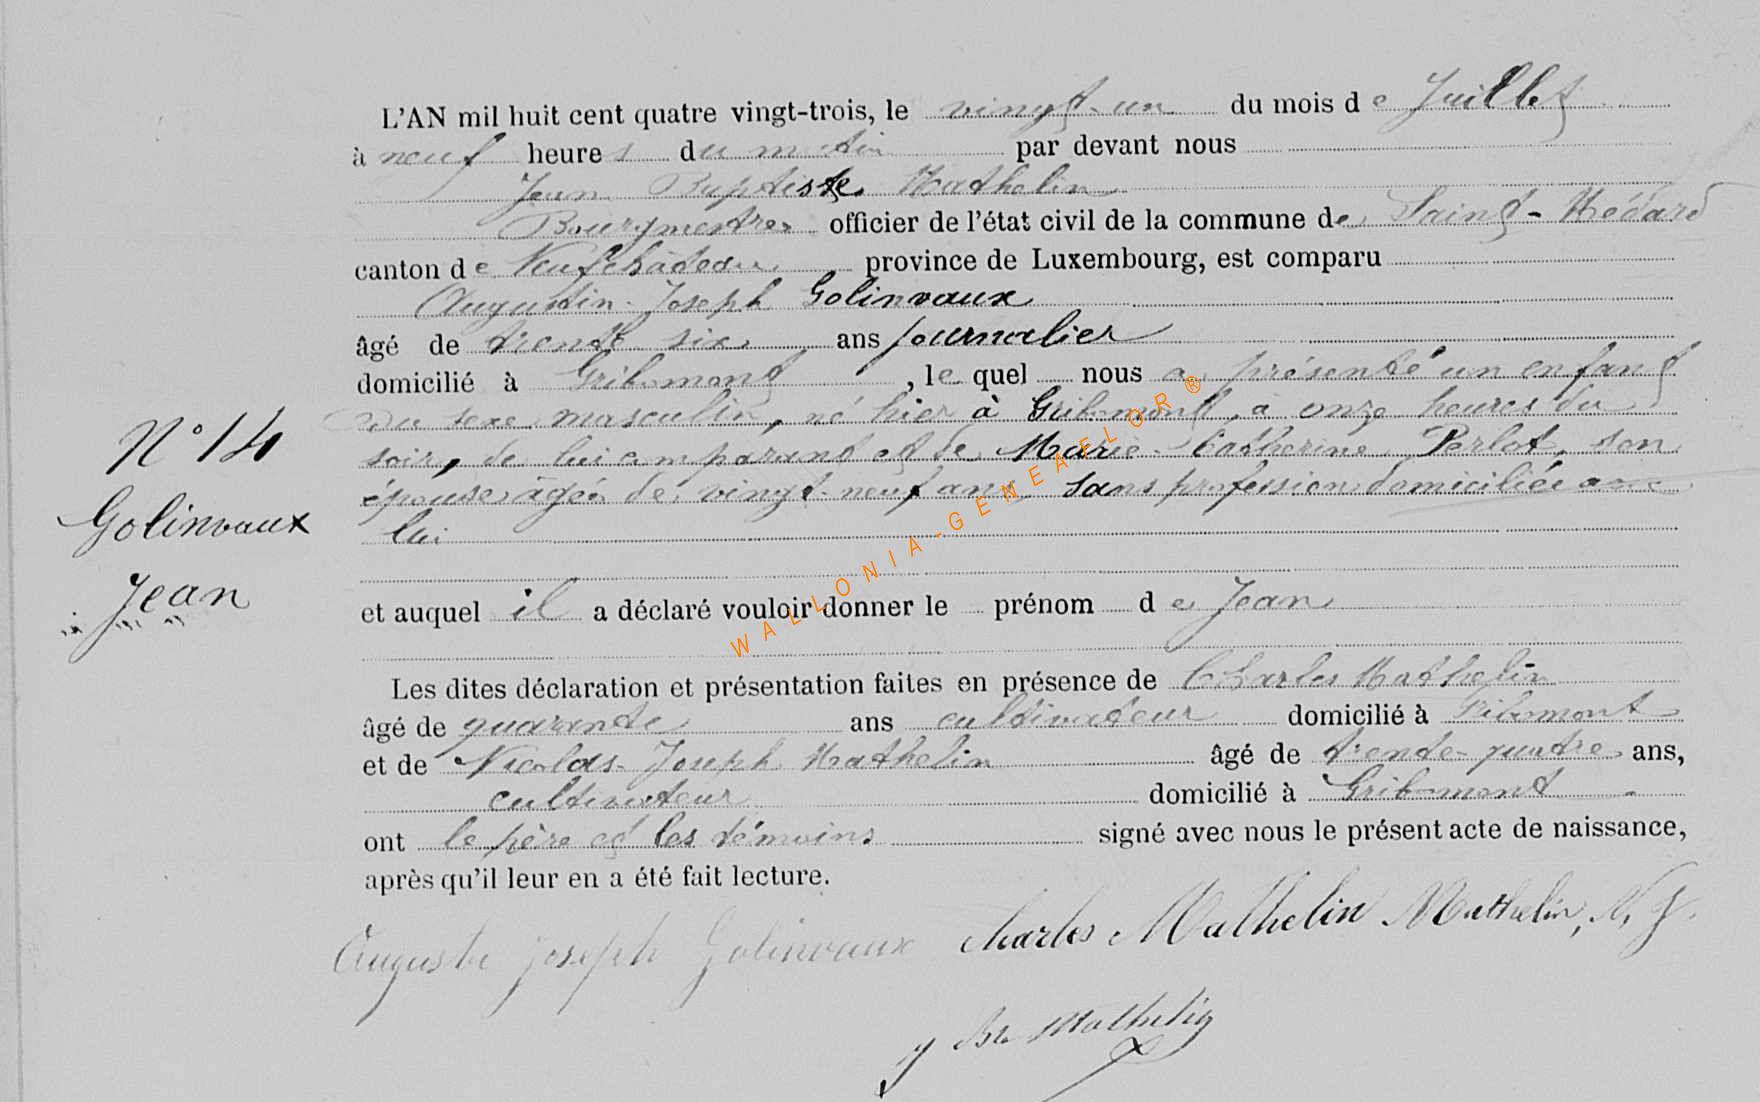 L'AN mil huit cent quatre vingt-trois, le vingt-un du mois de Juillet
à neuf heures du matin par devant nous
Jean Baptiste Mathelin
Bourgmestre officier de l'état civil de la commune de Saint-Médard
canton de Neufchâteau province de Luxembourg, est comparu
Augustin-Joseph Golinvaux
âgé de trente six ans journalier
domicilié à Gribomont, le quel nous a présenté un enfant
du sexe masculin, né hier à Gribomont, à onze heures du
soir, de lui comparant et de Marie-Catherine Perlot, son
épouse âgée de vingt-neuf ans, sans profession domiciliée avec
lui
N° 14
Golinvaux
Jean
et auquel il a déclaré vouloir donner le prénom de Jean
Les dites déclaration et présentation faites en présence de Charles Mathelin
âgé de quarante ans cultivateur domicilié à Gribomont
et de Nicolas-Joseph Mathelin âgé de trente-quatre ans,
cultivateur domicilié à Gribomont
ont le père et les témoins signé avec nous le présent acte de naissance,
après qu'il leur en a été fait lecture.
Auguste Joseph Golinvaux Charles Mathelin Mathelin, N, J.
J Bte Mathelin
WALLONIA-GENEAFLOR ®